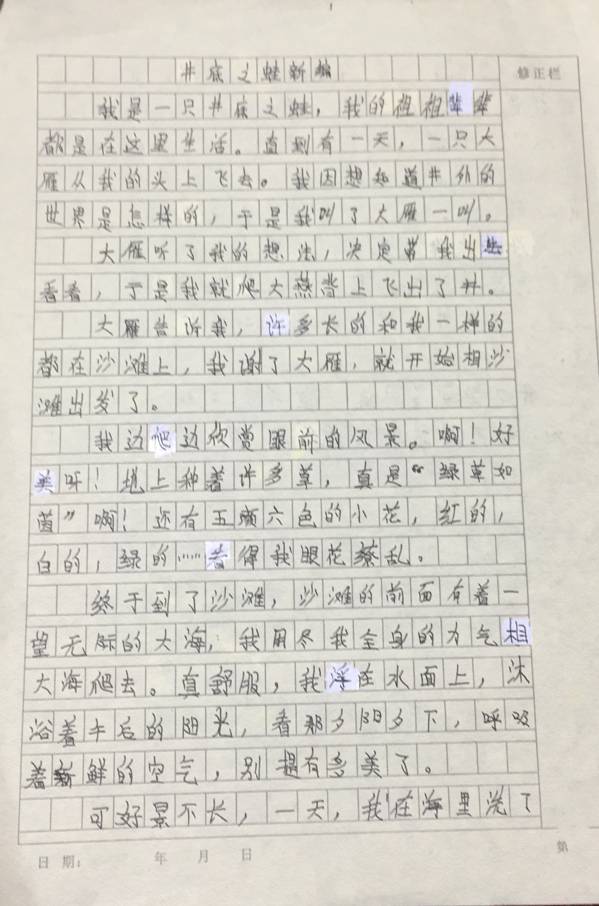 井底之蛙新编
修正栏
我是一只井底之蛙，我的祖祖辈辈
都是在这里生活。直到有一天，一只大
雁从我的头上飞去。我因想知道井外的
世界是怎样的，于是我叫了大雁一叫。
大雁听了我的想法，决定带我出去
看看，于是我就爬大燕背上飞出了井。
大雁告诉我，许多长的和我一样的
都在沙滩上，我谢了大雁，就开始相沙
滩出发了。
我边爬边欣赏眼前的风景。啊！好
美呀！地上种着许多草，真是“绿草如
茵”啊！还有五颜六色的小花，红的，
白的，绿的……看得我眼花缭乱。
终于到了沙滩，沙滩的前面有着一
望无际的大海，我用尽我全身的力气相
大海爬去。真舒服，我浮在水面上，沐
浴着午后的阳光，看那夕阳夕下，呼吸
着新鲜的空气，别提有多美了。
可好景不长，一天，我在海里洗了
日期： 年 月 日
第